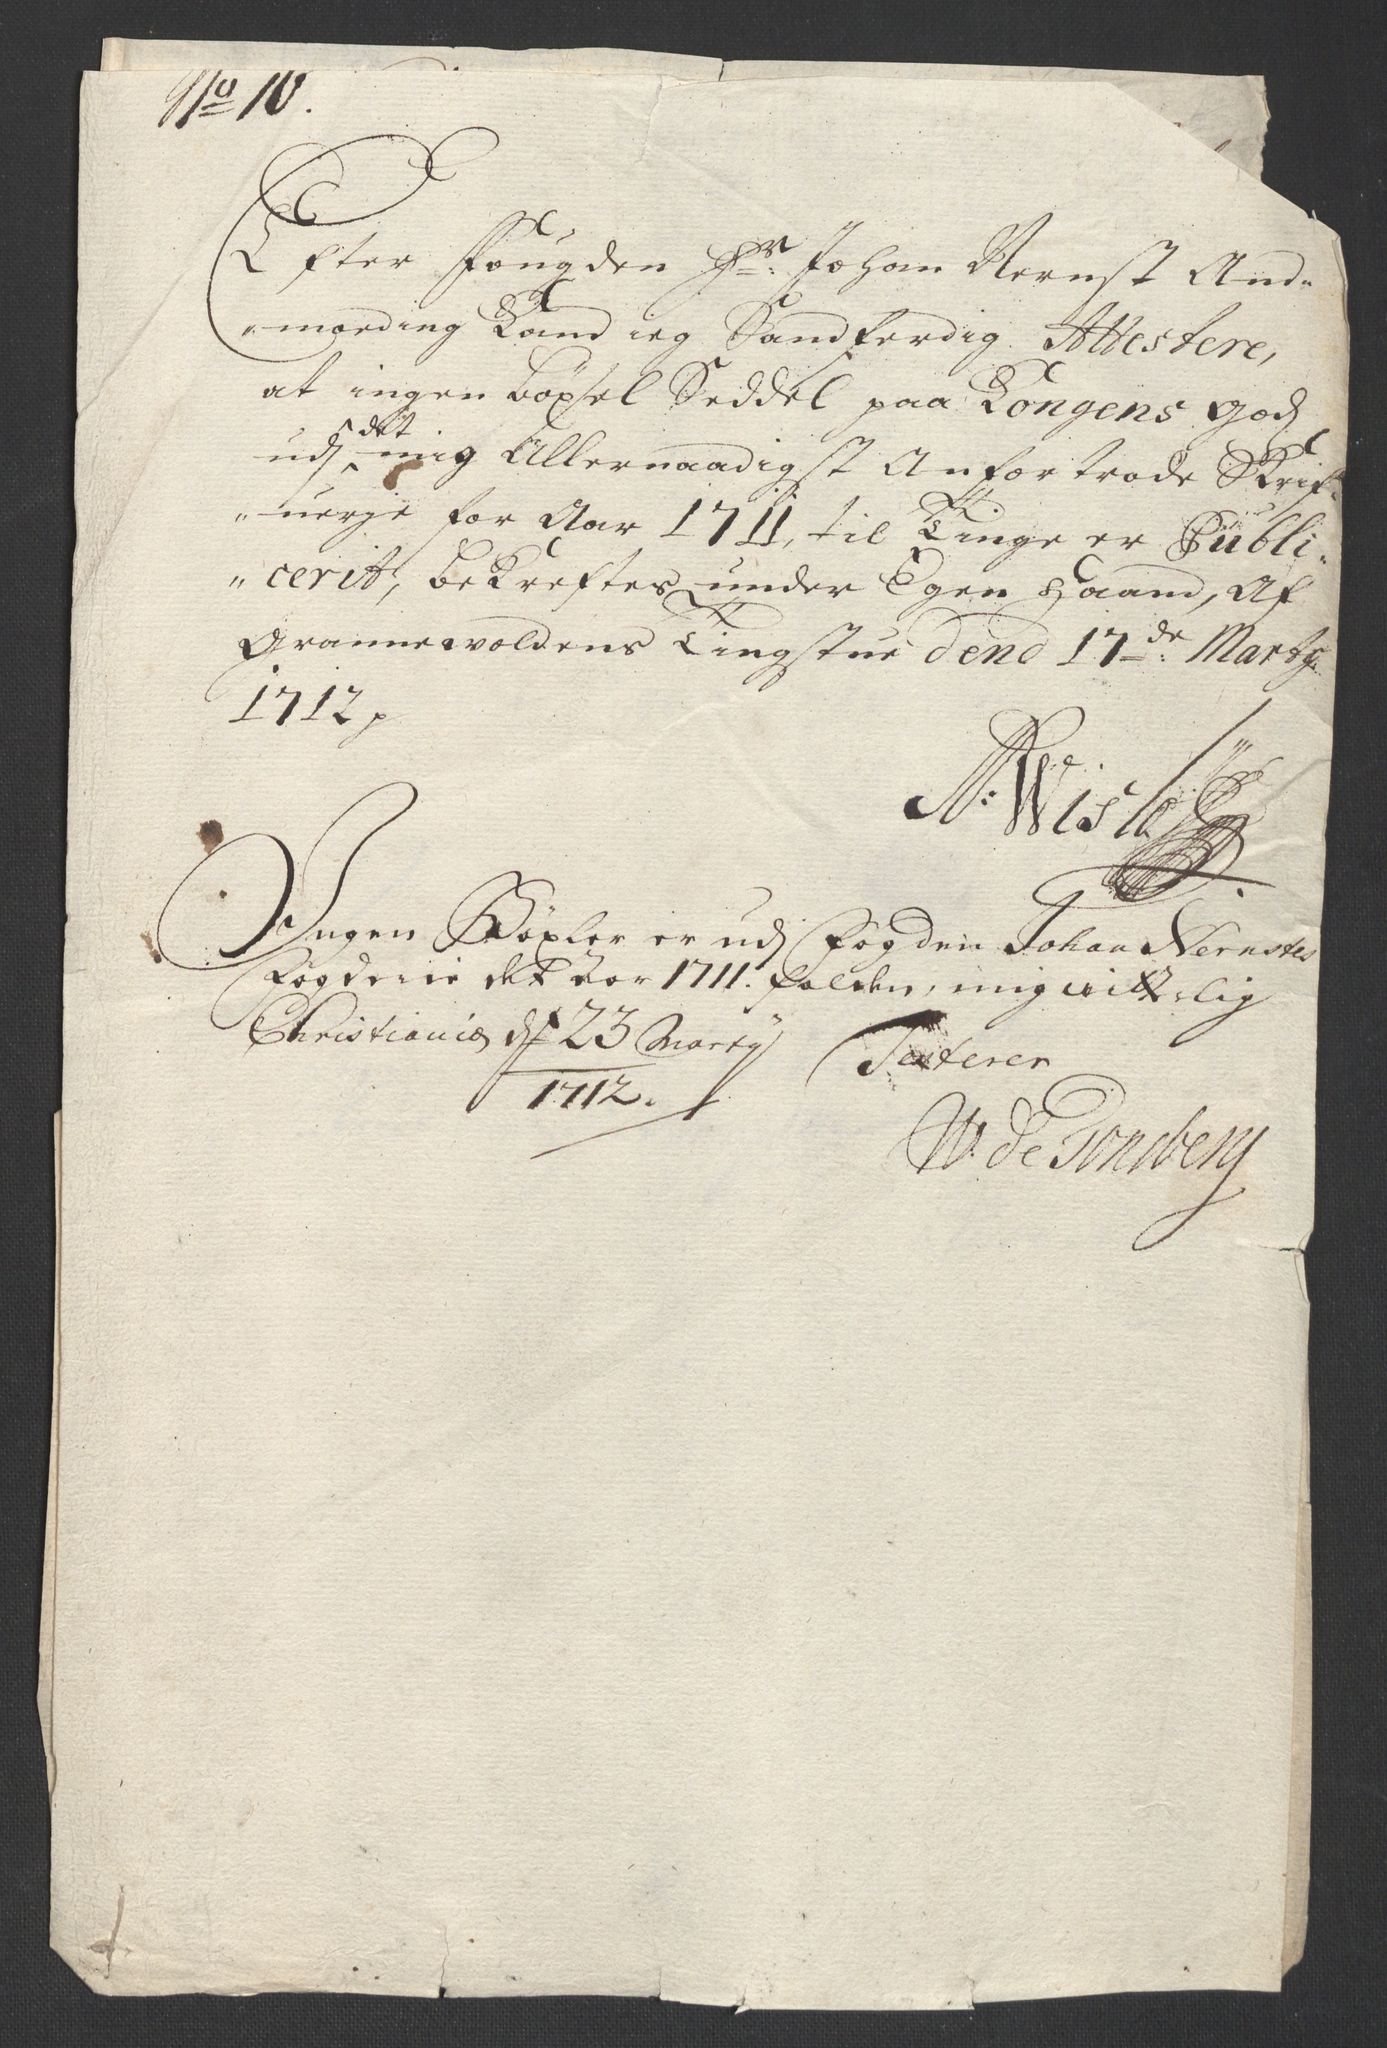 No 10.
Efter Fougden Hr: Johan Nernst And„
„moeding kand ieg Sandferdig Attestere,
at ingen böxsel Seddel paa Kongens god„
udj det mig Allernaadigst Anfortrode Skrif„
„uerje for Aar 1711, til Tinge er Publi„
„cerit, bekreftes under Egen Haand, Af
Grannewoldens Tingstue dend 17de: Marty
1712
Ingen Böxler er udj Fogden Johan Nernstes
Fogderie det Aar 1711. falden, mig vitterlig
Christiania d 23 Marty Testerer
1712.
W. de Tonsberg